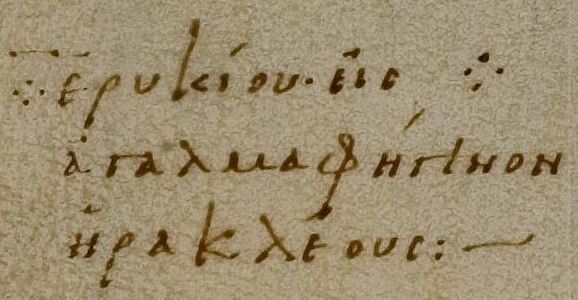 ⁘ ερυκίου· εἰς ⁘
ἀγαλμα φήγινον
ἡρακλέους:—